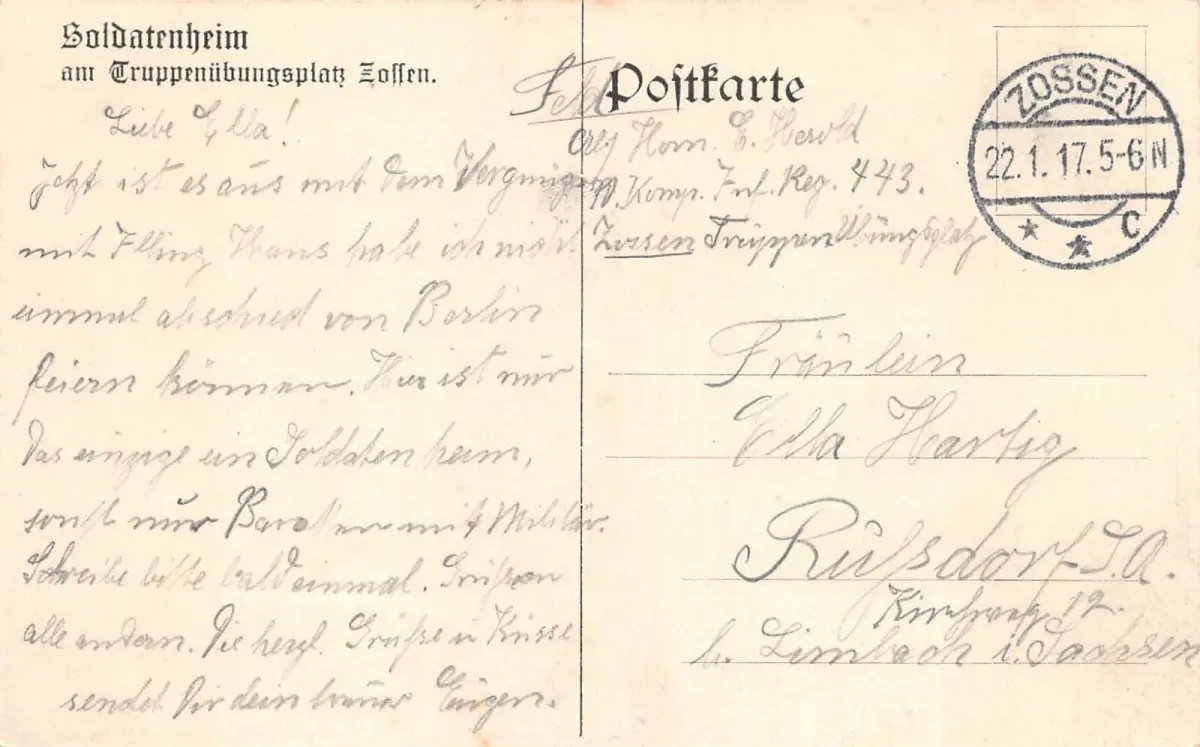 Soldatenheim
am Truppenübungsplatz Zossen.
Liebe Ella!
Jetzt ist es aus mit dem Vergnügen
mit Illing Hans habe ich nicht
einmal abschied von Berlin
feiern können. Hier ist nur
das einzige ein Soldatenheim,
sonst nur Baraken mit Militär.
Schreibe bitte bald einmal. Grüße an
alle andern. Die herzl. Grüße u Küsse
sendet Dir dein Eugen.
Feld Postkarte
Horn. E. Herold
Komp. Inf. Reg. 443.
Zossen Truppenübungsplatz
ZOSSEN
22.1.17.5-6N
* * C
Fräulein
Ella Hartig
Rußdorf S.A.
Kirchweg 12.
b. Limbach i. Sachsen